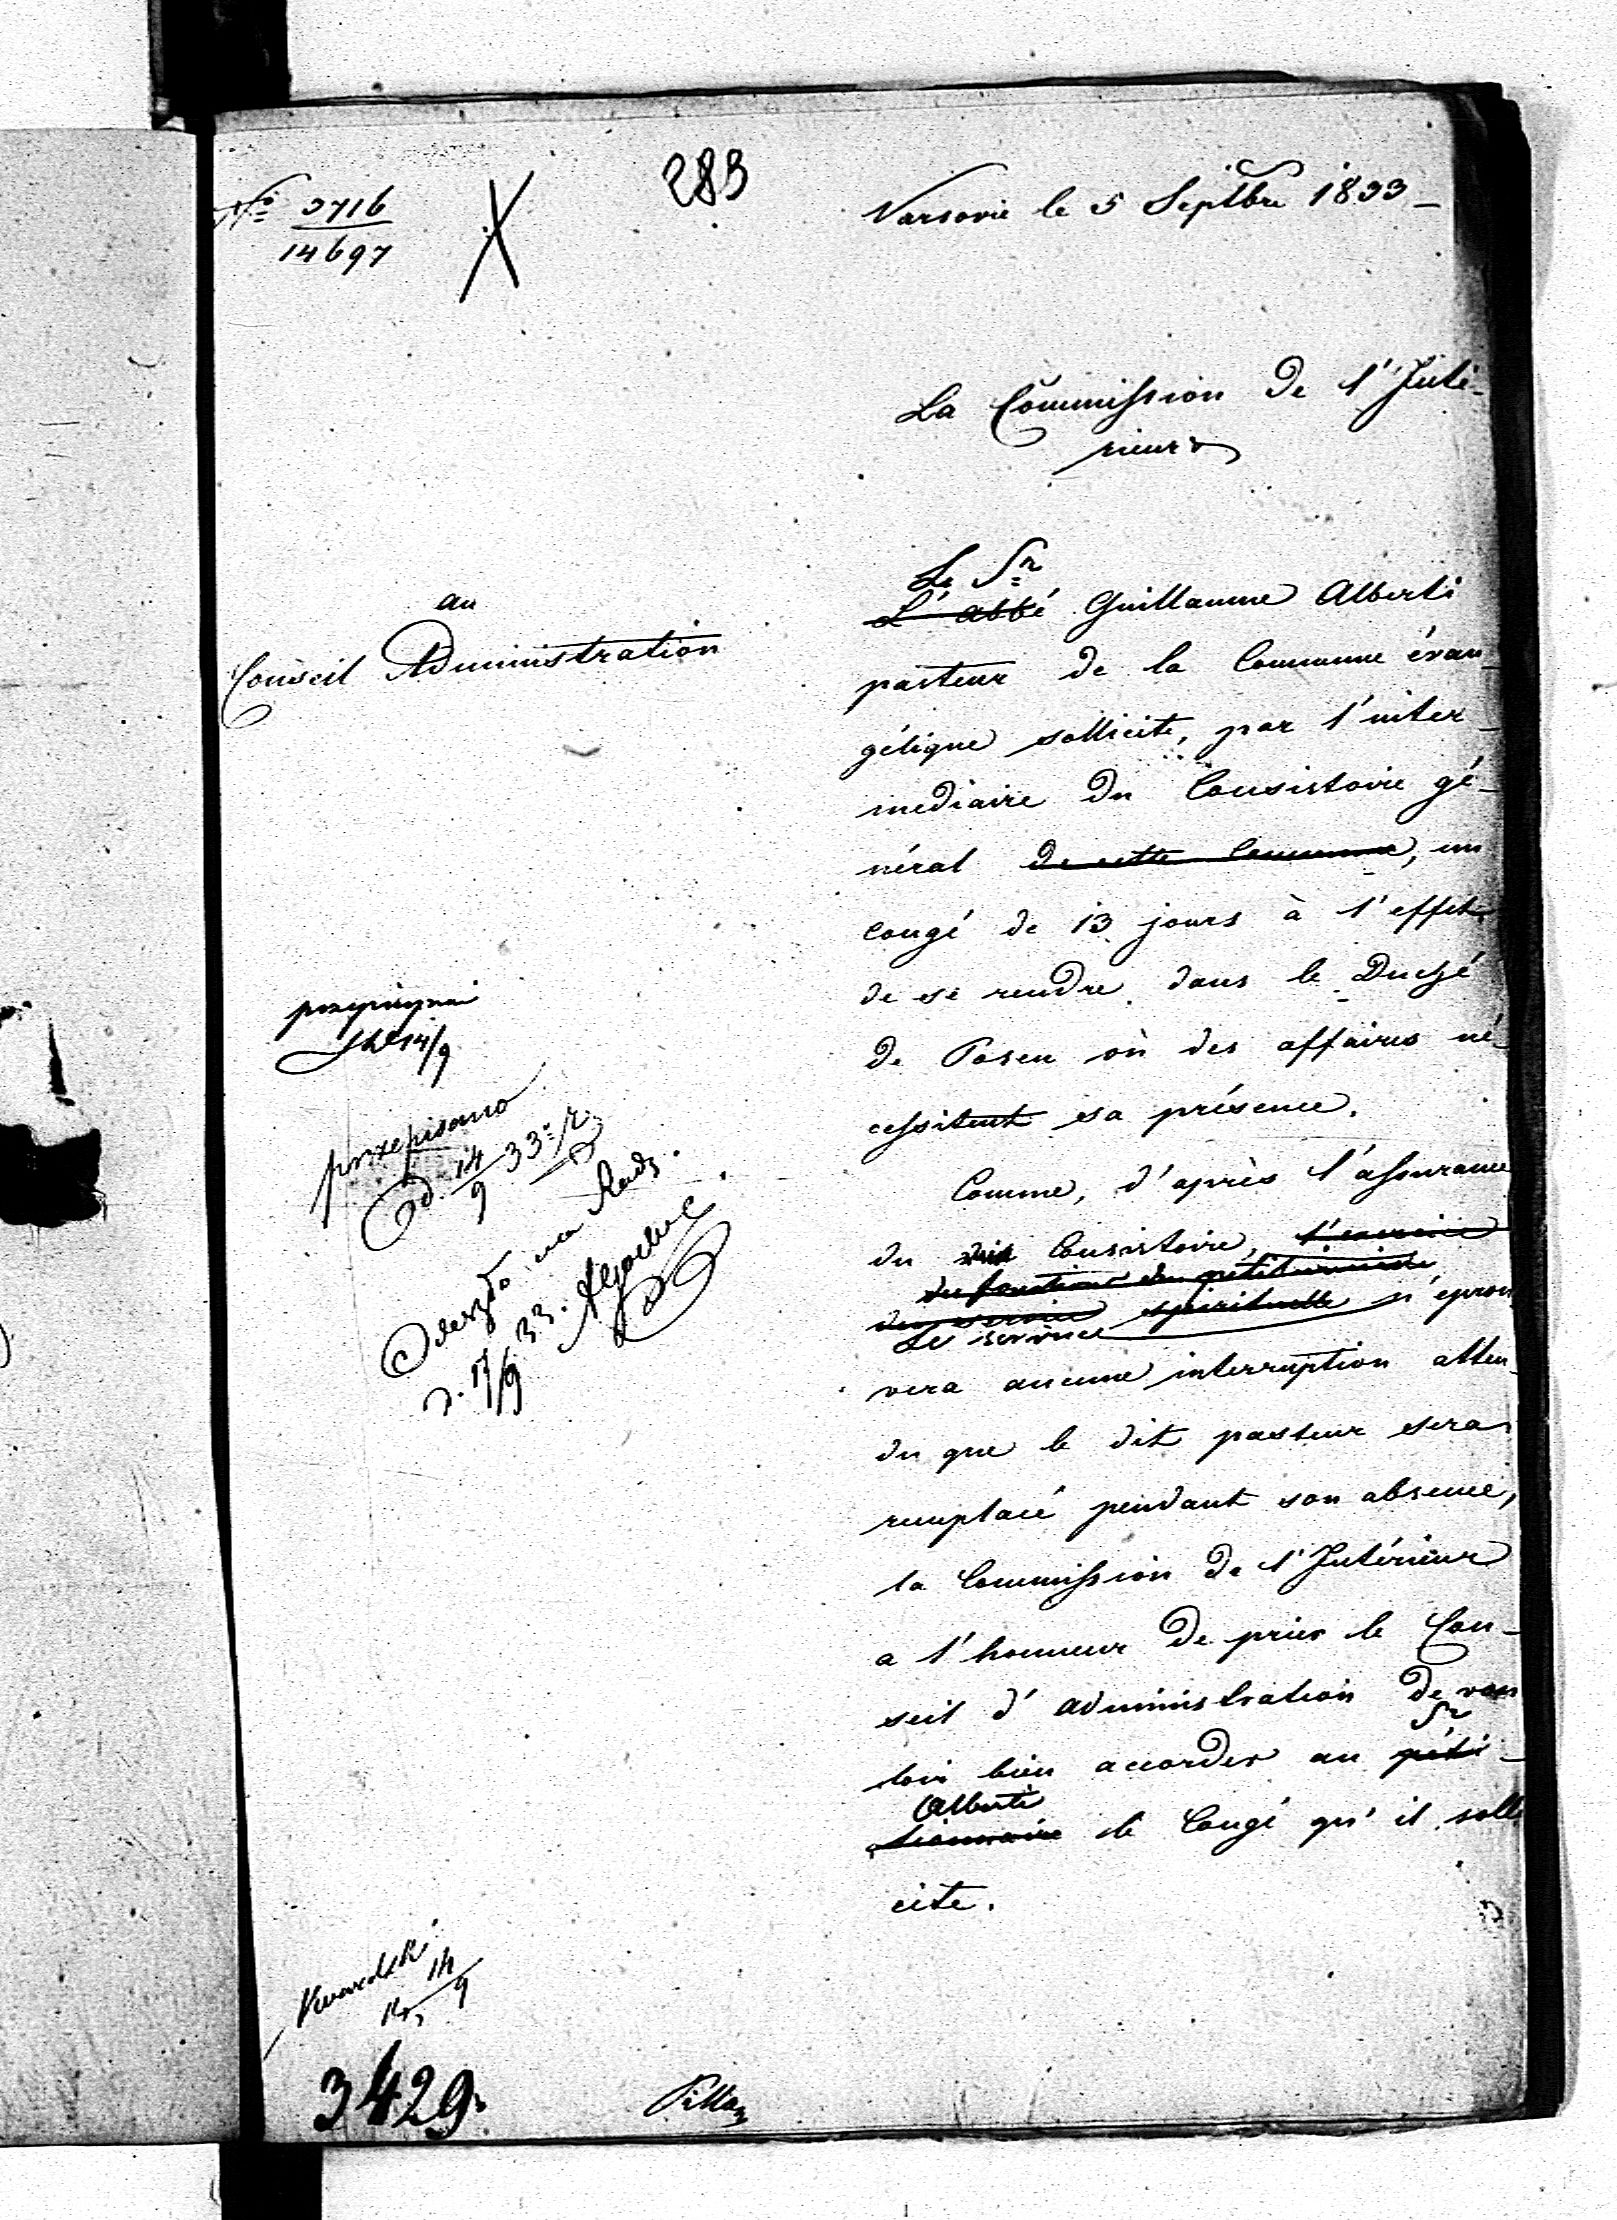 283
Nº 3716
14697
Varsovie le 5 Septbre 1833
La Commission de l'Inté-
rieur
au
Conseil Administration
Le Sr
L'abbé Guillaume Alberti
pasteur de la Commune évan-
gélique sollicite, par l'inter-
mediaire du Consistoire gé-
néral de cette Commune, un
congé de 13 jours à l'effet
de se rendre dans le Duché
de Posen où des affaires né-
cessitent sa présence.
Comme, d'après l'assurance
du dit Consistoire, l'exercice
des fonctions du petitionnaire
du service spirituelle n'éprou-
Le service
vera aucune interruption atten-
du que le dit pasteur sera
remplacé pendant son absence,
la Commission de l'Intérieur
a l'honneur de prier le Con-
seil d'administration de vou
Sr
loir bien accorder au péti-
Alberti
tionnaire le Congé qu'il solli
cite.
14/9
przepisano
d. 14/9 33 r
d. 17/9 33.
14/9
3429